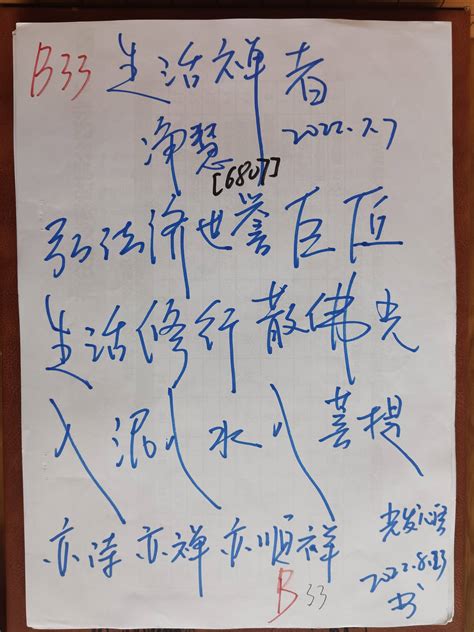 B33 生活禅者
净慧 2022.7.7
[6807]
弘法济世誉巨匠
生活修行散佛光
人润水心菩提
亦诗亦禅亦顺祥
2022.8.23
书
B33